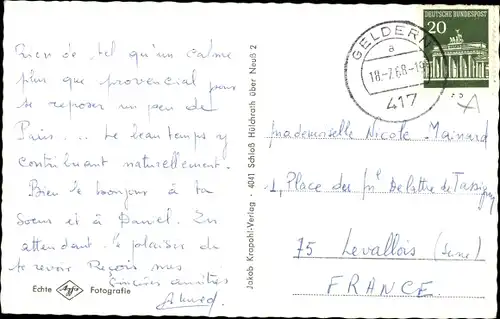 Rien de tel qu'un calme
plus que provencial pour
se reposer un peu de
Paris... Le beau temps y
contribuant naturellement.
Bien le bonjour à ta
Soeur et à Daniel. En
attendant le plaisir de
te revoir Reçois mes
Sincères amitiés
Echte Agfa Fotografie
Jakob Krapohl-Verlag · 4041 Schloß Hülchrath über Neuß 2
GELDERN
a
18.-7.68.-19
417
DEUTSCHE BUNDESPOST
20
Mademoiselle Nicole Mainard
1, Place du Ml De Lattre de Tassigny
75 Levallois (Seine)
FRANCE